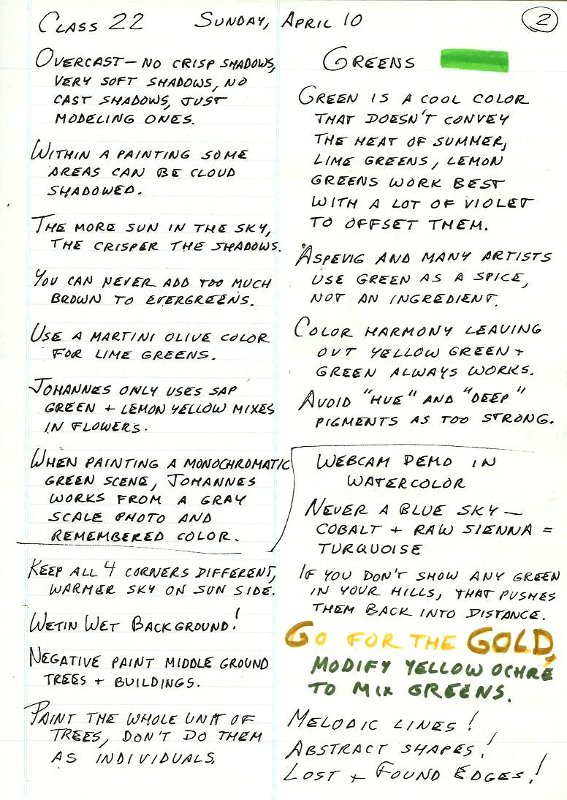 CLASS 22 SUNDAY, APRIL 10 2
OVERCAST — NO CRISP SHADOWS,
VERY SOFT SHADOWS, NO
CAST SHADOWS, JUST
MODELING ONES.
WITHIN A PAINTING SOME
AREAS CAN BE CLOUD
SHADOWED.
THE MORE SUN IN THE SKY,
THE CRISPER THE SHADOWS.
YOU CAN NEVER ADD TOO MUCH
BROWN TO EVERGREENS.
USE A MARTINI OLIVE COLOR
FOR LIME GREENS.
JOHANNES ONLY USES SAP
GREEN + LEMON YELLOW MIXES
IN FLOWERS.
WHEN PAINTING A MONOCHROMATIC
GREEN SCENE, JOHANNES
WORKS FROM A GRAY
SCALE PHOTO AND
REMEMBERED COLOR.
GREENS
GREEN IS A COOL COLOR
THAT DOESN'T CONVEY
THE HEAT OF SUMMER,
LIME GREENS, LEMON
GREENS WORK BEST
WITH A LOT OF VIOLET
TO OFFSET THEM.
ASPEVIG AND MANY ARTISTS
USE GREEN AS A SPICE,
NOT AN INGREDIENT.
COLOR HARMONY LEAVING
OUT YELLOW GREEN +
GREEN ALWAYS WORKS.
AVOID "HUE" AND "DEEP"
PIGMENTS AS TOO STRONG.
WEBCAM DEMO IN
WATERCOLOR
KEEP ALL 4 CORNERS DIFFERENT,
WARMER SKY ON SUN SIDE.
WET IN WET BACKGROUND!
NEGATIVE PAINT MIDDLE GROUND
TREES + BUILDINGS.
PAINT THE WHOLE UNIT OF
TREES, DON'T DO THEM
AS INDIVIDUALS.
NEVER A BLUE SKY —
COBALT + RAW SIENNA =
TURQUOISE
IF YOU DON'T SHOW ANY GREEN
IN YOUR HILLS, THAT PUSHES
THEM BACK INTO DISTANCE.
GO FOR THE GOLD,
MODIFY YELLOW OCHRE
TO MIX GREENS.
MELODIC LINES!
ABSTRACT SHAPES!
LOST + FOUND EDGES!